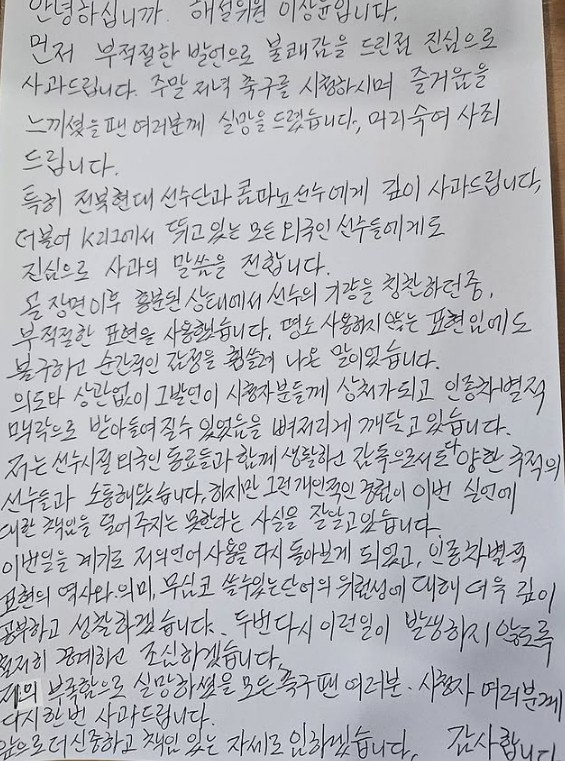 안녕하십니까. 해설위원 이상윤입니다.
먼저 부적절한 발언으로 불쾌감을 드린점 진심으로
사과드립니다. 주말 저녁 축구를 시청하시며 즐거움을
느끼셨을 팬 여러분께 실망을 드렸습니다, 머리숙여 사죄
드립니다.
특히 전북현대 선수단과 콤파뇨선수에게 깊이 사과드립니다,
더불어 K리그에서 뛰고 있는 모든 외국인 선수들에게도
진심으로 사과의 말씀을 전합니다.
골 장면이후 흥분된 상태에서 선수의 기량을 칭찬하던 중,
부적절한 표현을 사용했습니다. 평소 사용하지 않는 표현임에도
불구하고 순간적인 감정을 휩쓸려 나온 말이었습니다.
의도와 상관없이 그발언이 시청자분들께 상처가되고 인종차별적
맥락으로 받아들여질수 있었음을 뼈저리게 깨닫고 있습니다.
저는 선수시절 외국인 동료들과 함께 생활하고 감독으로서도 다양한 국적의
선수들과 소통해왔습니다, 하지만 그런 개인적인 경험이 이번 실언에
대한 책임을 덜어 주지는 못한다는 사실을 잘알고있습니다.
이번일을 계기로 저의언어 사용을 다시 돌아보게 되었고, 인종차별적
표현의 역사와 의미, 무심코 쓸수있는 단어의 위험성에 대해 더욱 깊이
공부하고 성찰하겠습니다. 두번다시 이런일이 발생하지 않도록
철저히 경계하고 조심하겠습니다.
저의 부족함으로 실망하셨을 모든축구팬 여러분. 시청자 여러분께
다시한번 사과드립니다.
앞으로 더 신중하고 책임 있는 자세로 임하겠습니다. 감사합니다